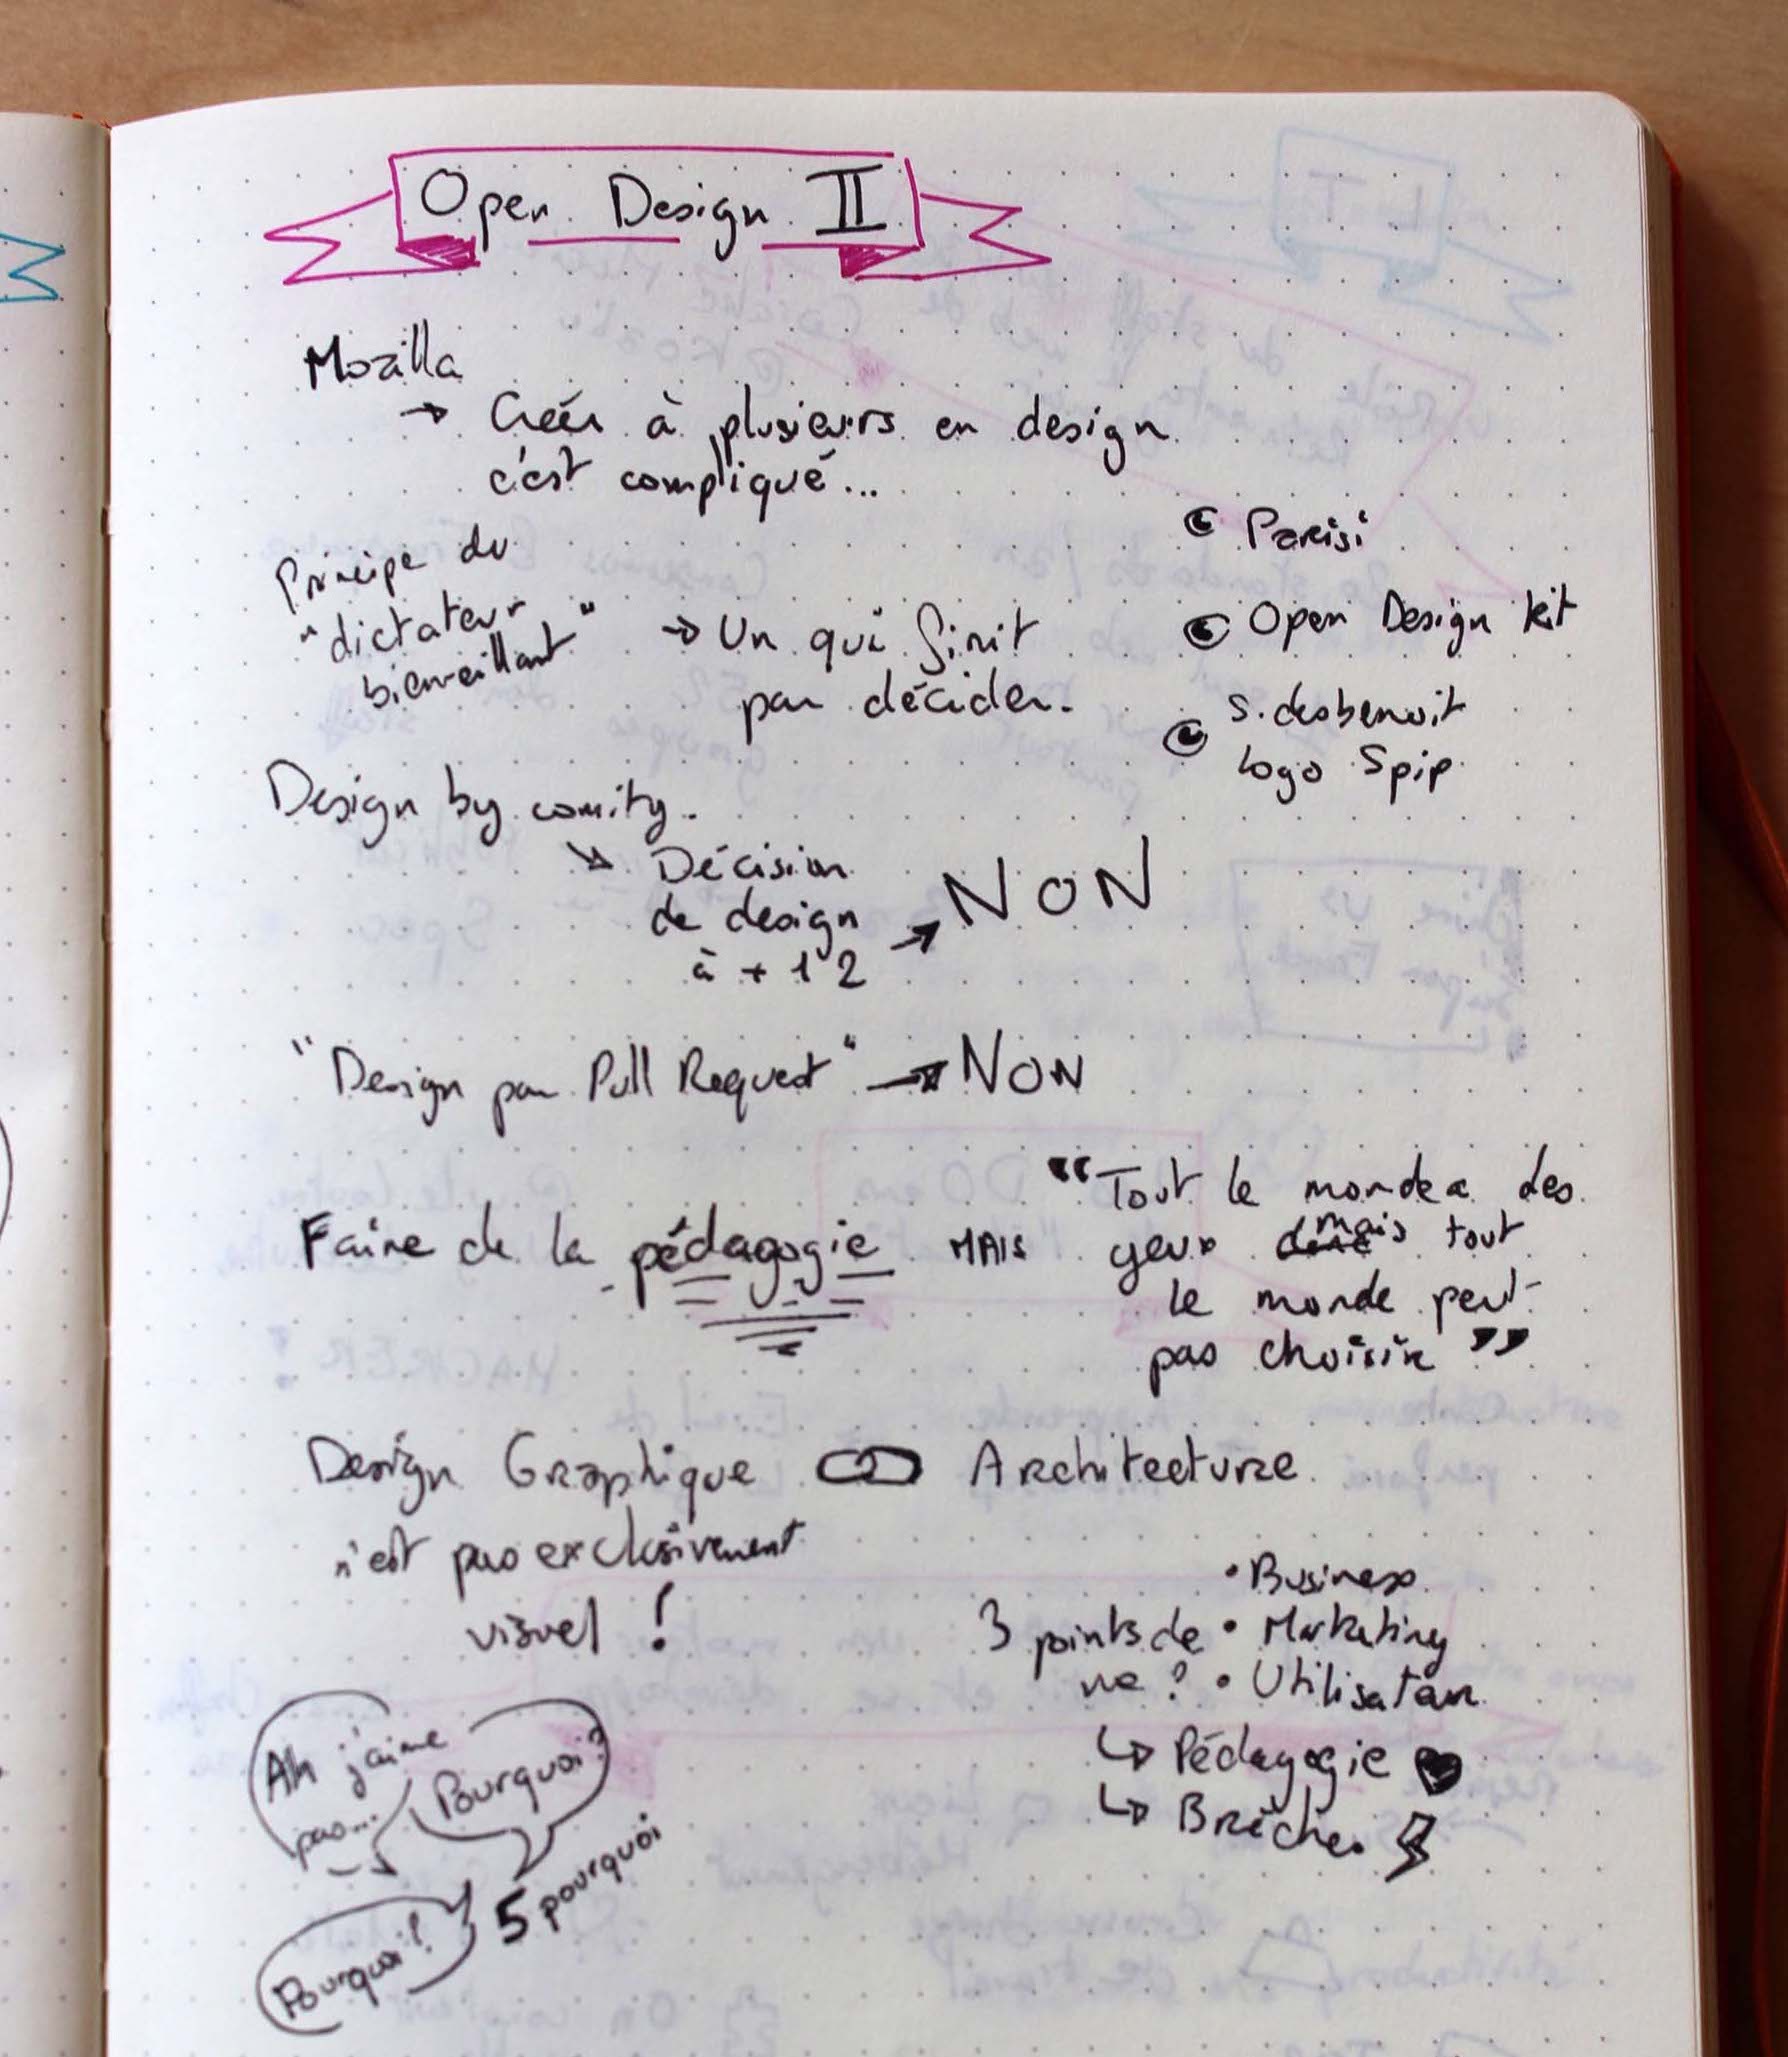 Open Design II
Mozilla
→ Créer à plusieurs en design
c'est compliqué...
Principe du
"dictateur
bienveillant"
→ Un qui finit
par décider.
Parisi
Open Design kit
S. desbenoit
Logo Spip
Design by comity.
↘ Décision
de design
à + 12
→ NON
"Design par Pull Request" → NON
Faire de la pédagogie MAIS
"Tout le monde a des
yeux mais tout
le monde peut
pas choisir"
Design Graphique Architecture
n'est pas exclusivement
visuel !
3 points de
vue ?
• Business
• Marketing
• Utilisateur
↳ Pédagogie ♥
↳ Brèche.
Ah j'aime
pas...
Pourquoi?
Pourquoi?
5 pourquoi